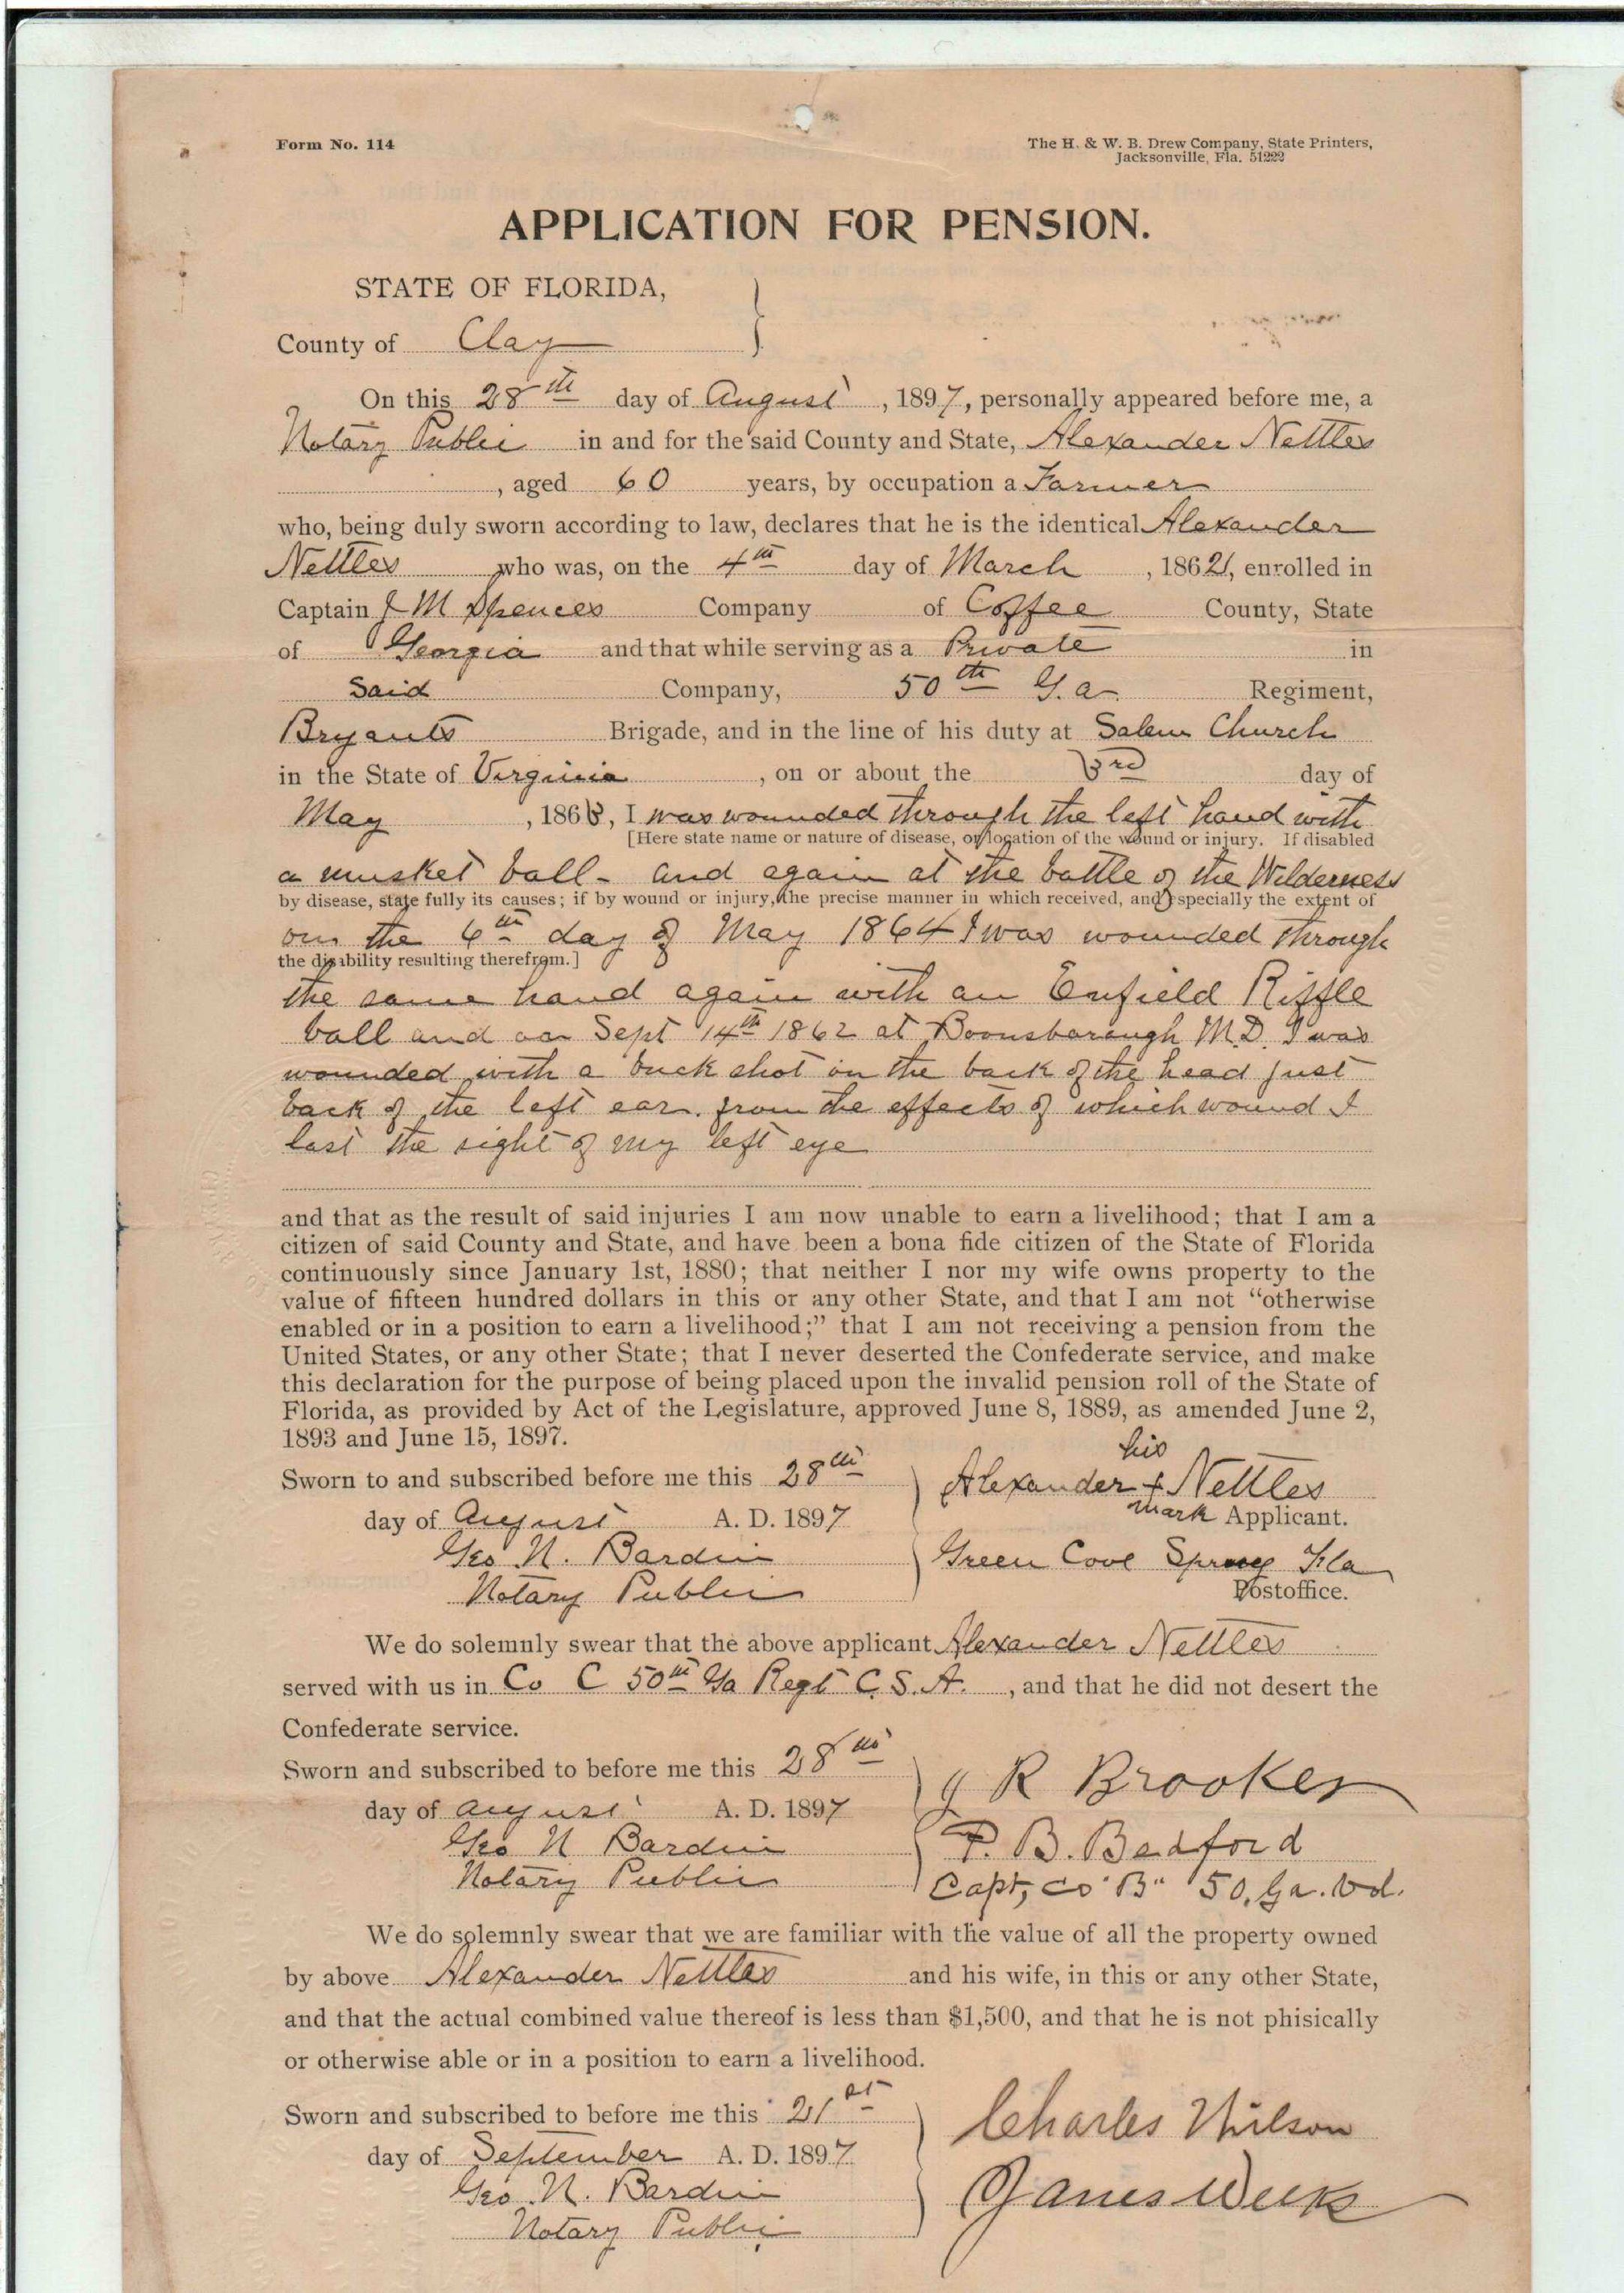 Form No. 114
The H. & W. B. Drew Company, State Printers,
Jacksonville, Fla. 51222
APPLICATION FOR PENSION.
STATE OF FLORIDA,
County of Clay
On this 28th day of August, 1897, personally appeared before me, a
Notary Public in and for the said County and State, Alexander Nettles
, aged 60 years, by occupation a Farmer
who, being duly sworn according to law, declares that he is the identical Alexander
Nettles who was, on the 4th day of March, 1862, enrolled in
Captain J M Spences Company of Coffee County, State
of Georgia and that while serving as a Private in
Said Company, 50th G.a. Regiment,
Bryants Brigade, and in the line of his duty at Salem Church
in the State of Virginia, on or about the 3rd day of
May, 1863, I was wounded through the left hand with
[Here state name or nature of disease, or location of the wound or injury. If disabled
a musket ball - and again at the battle of the Wilderness
by disease, state fully its causes; if by wound or injury, the precise manner in which received, and especially the extent of
on the 6th day of May 1864 I was wounded through
the disability resulting therefrom.]
the same hand again with an Enfield Riffle
ball and on Sept 14th 1862 at Boonsborough M.D. I was
wounded with a buck shot in the back of the head just
back of the left ear. from the effects of which wound I
last the sight of my left eye
and that as the result of said injuries I am now unable to earn a livelihood; that I am a
citizen of said County and State, and have been a bona fide citizen of the State of Florida
continuously since January 1st, 1880; that neither I nor my wife owns property to the
value of fifteen hundred dollars in this or any other State, and that I am not "otherwise
enabled or in a position to earn a livelihood;" that I am not receiving a pension from the
United States, or any other State; that I never deserted the Confederate service, and make
this declaration for the purpose of being placed upon the invalid pension roll of the State of
Florida, as provided by Act of the Legislature, approved June 8, 1889, as amended June 2,
1893 and June 15, 1897.
his
Sworn to and subscribed before me this 28th Alexander + Nettles
day of August A. D. 1897 mark Applicant.
Geo N. Bardin Green Cove Spring Fla
Notary Public Postoffice.
We do solemnly swear that the above applicant Alexander Nettles
served with us in Co C 50th Ga Regt C.S.A., and that he did not desert the
Confederate service.
Sworn and subscribed to before me this 28th J R Brooker
day of August A. D. 1897
Geo N Bardin P. B. Bedford
Notary Public Capt, Co "B" 50. Ga. Vol.
We do solemnly swear that we are familiar with the value of all the property owned
by above Alexander Nettles and his wife, in this or any other State,
and that the actual combined value thereof is less than $1,500, and that he is not phisically
or otherwise able or in a position to earn a livelihood.
Sworn and subscribed to before me this 21st Charles Wilson
day of September A. D. 1897
Geo. N. Bardin James Weeks
Notary Public